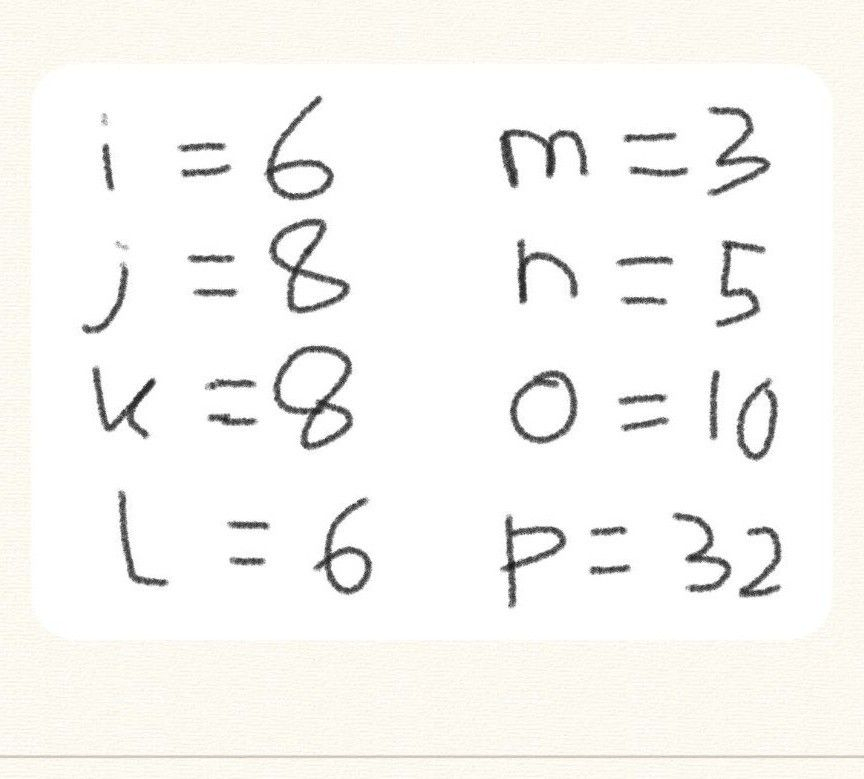 i = 6
j = 8
k = 8
l = 6
m = 3
n = 5
o = 10
p = 32